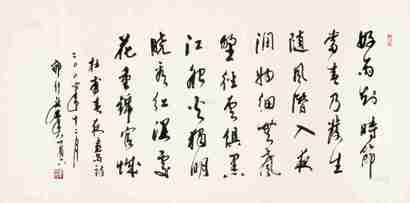 好雨知時節
當春乃發生
随風潛入夜
潤物細無聲
野徑雲俱黑
江船火獨明
曉看紅濕處
花重錦官城
杜甫春夜喜雨詩
二〇〇六年十二月